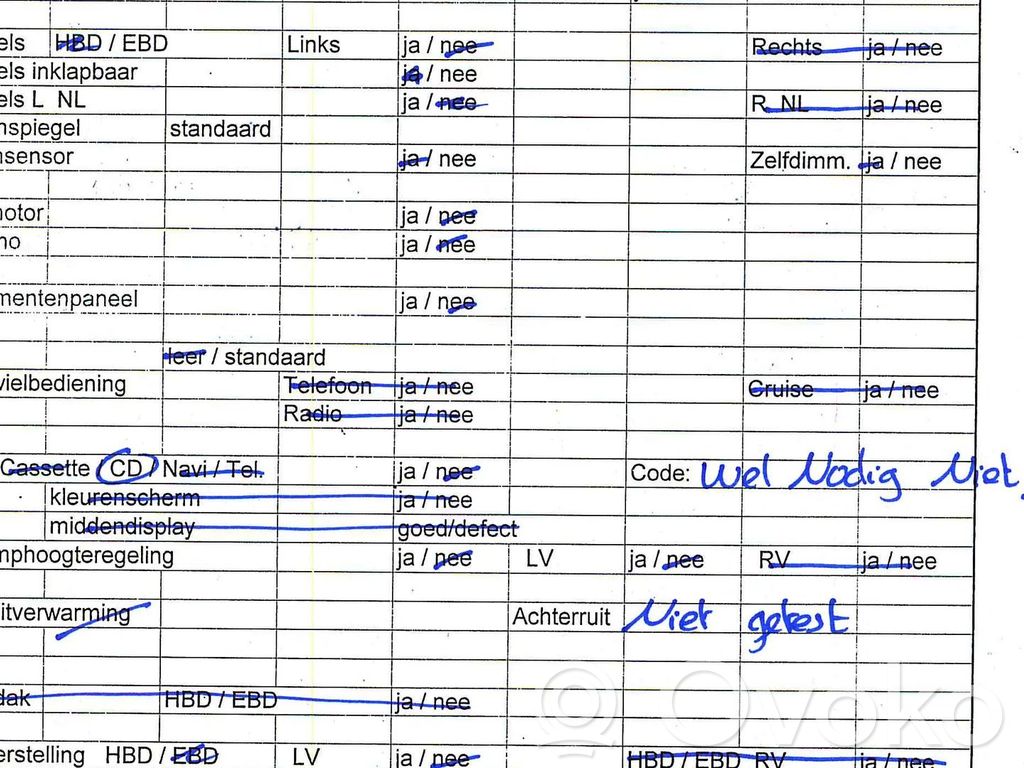 els HBD / EBD Links ja / nee Rechts ja / nee
els inklapbaar ja / nee
els L NL ja / nee R NL ja / nee
nspiegel standaard
nsensor ja / nee Zelfdimm. ja / nee
notor ja / nee
no ja / nee
mentenpaneel ja / nee
leer / standaard
vielbediening Telefoon ja / nee Cruise ja / nee
Radio ja / nee
Cassette / CD / Navi / Tel. ja / nee Code: Wel Nodig Niet
kleurenscherm ja / nee
middendisplay goed/defect
mphoogteregeling ja / nee LV ja / nee RV ja / nee
itverwarming Achterruit Niet getest
dak HBD / EBD ja / nee
erstelling HBD / EBD LV ja / nee HBD / EBD RV ja / nee
Ovoko